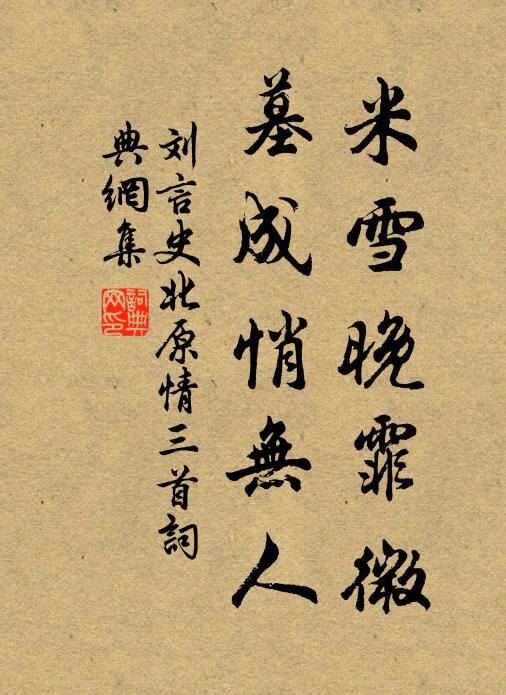 米雪晚霏微
墓成悄無人
刘言史北原情三首詞
典網集
詞典
网印